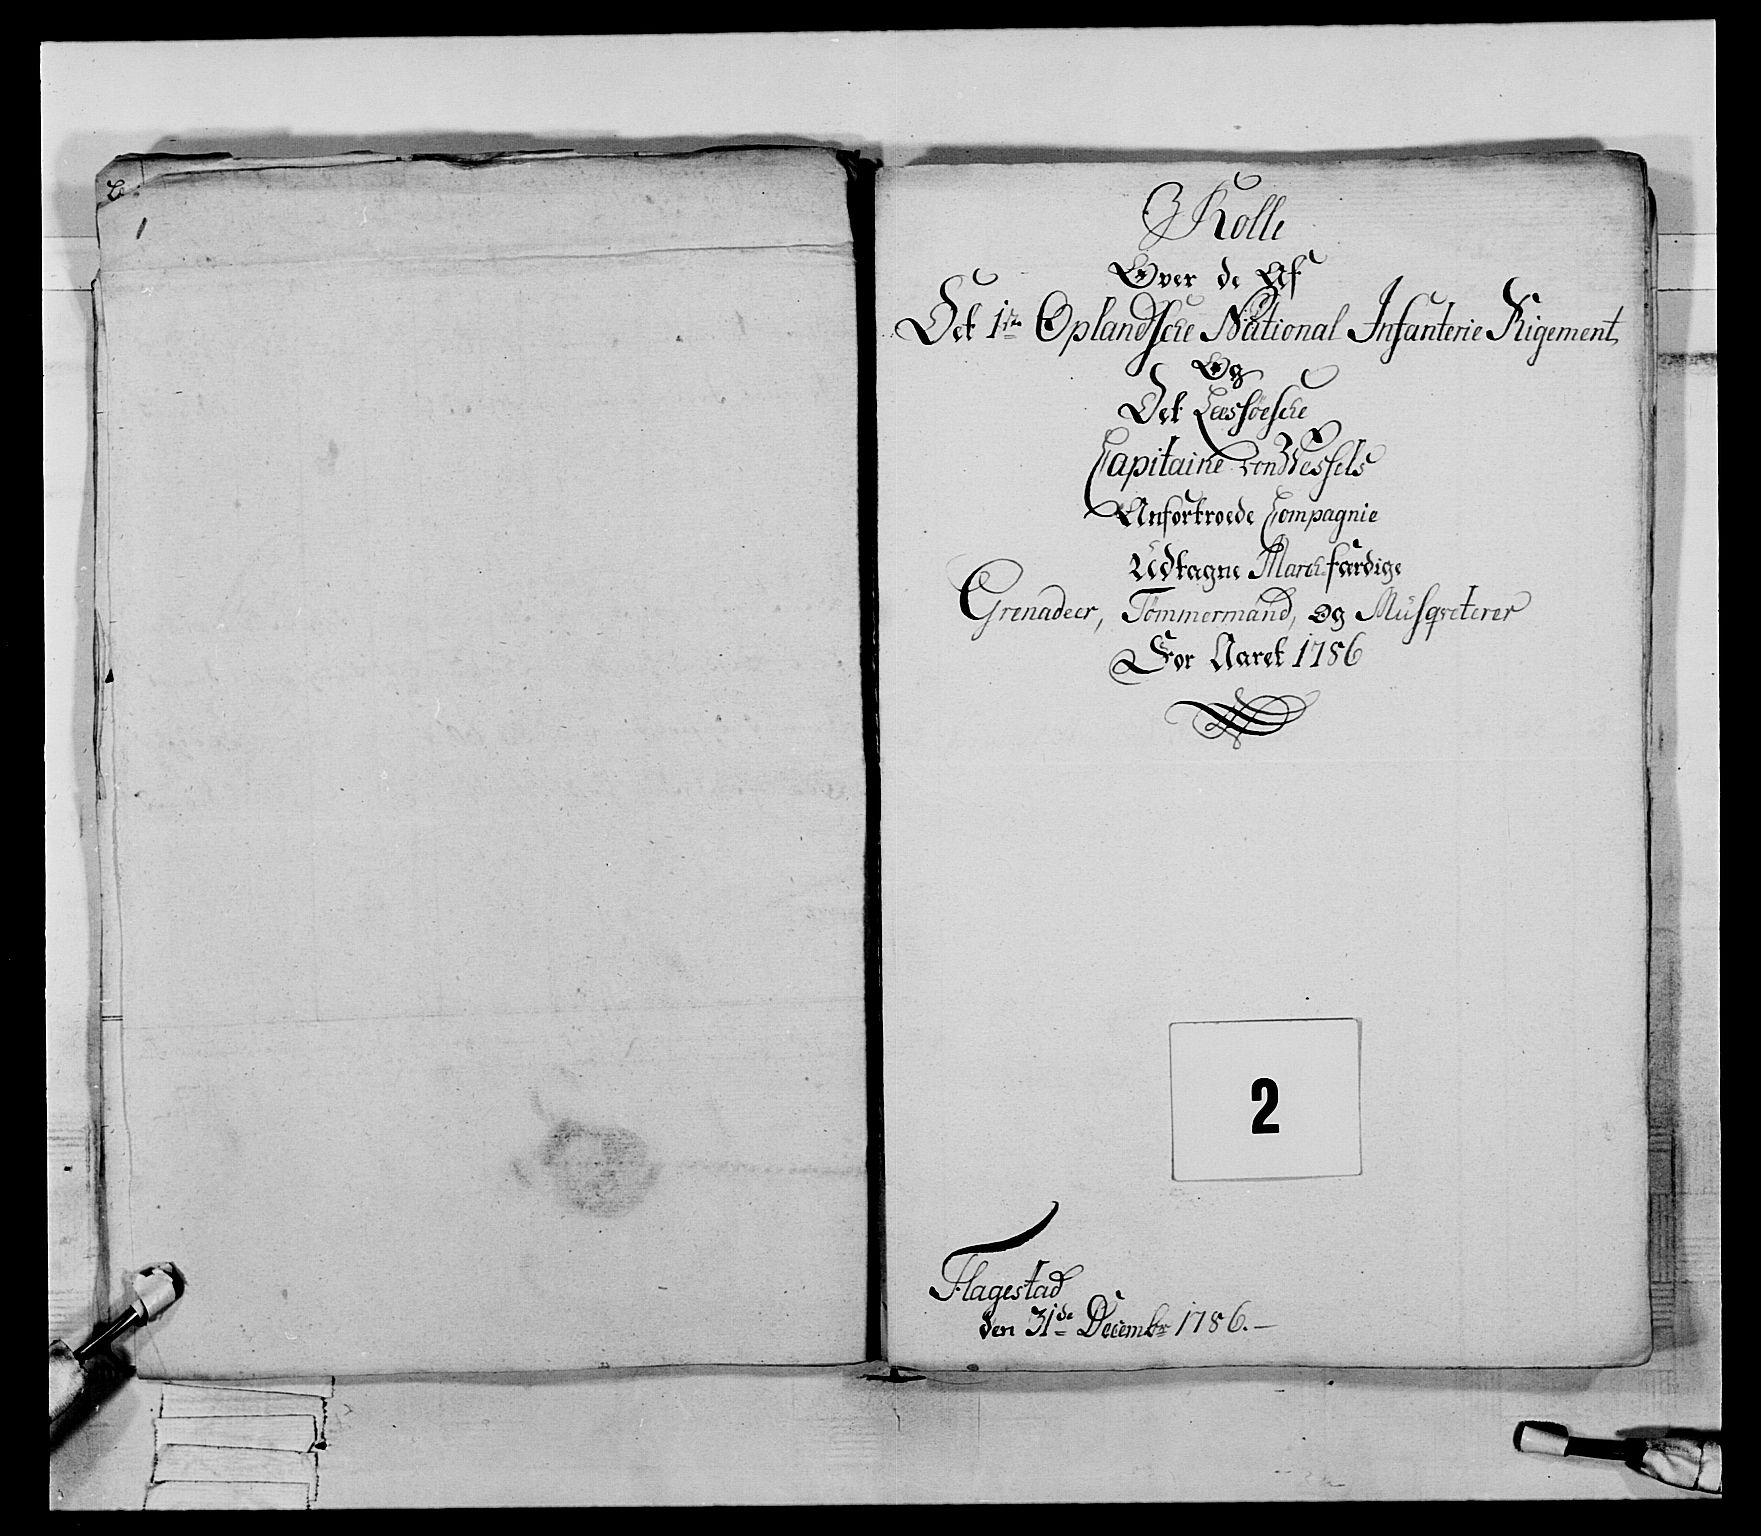 1
Rolle
Over de Af
Det 1te Oplandsche National Infanterie Regiment
Og
Det Lessøesche
Capitaine von Wessels
Anfortroede Compagnie
Udtagne March færdige
Grenadeer, Tömmermænd, og Musqveterer
For Aaret 1786
2
Flagestad
den 31de Decembr 1786.